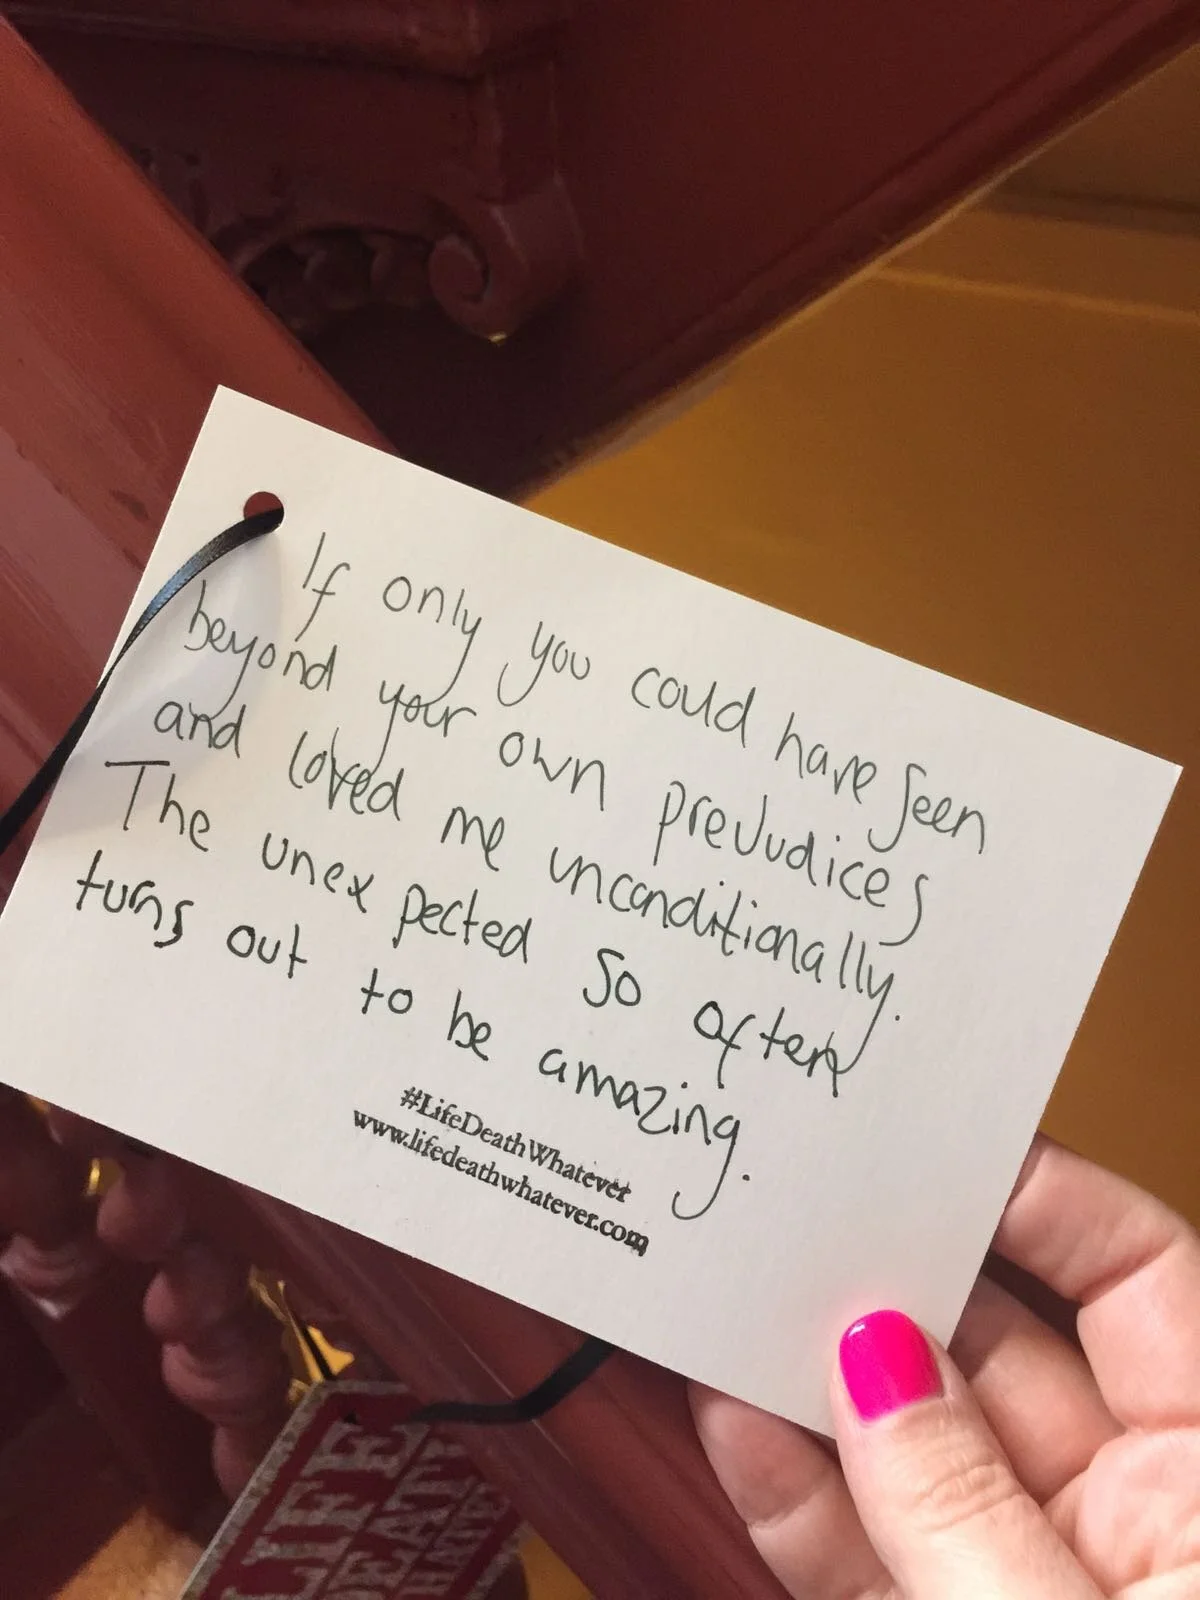 If only you could have seen
beyond your own prejudices
and loved me unconditionally.
The unexpected so often
turns out to be amazing.
#LifeDeathWhatever
www.lifedeathwhatever.com
LIFE
DEATH
WHATEVER